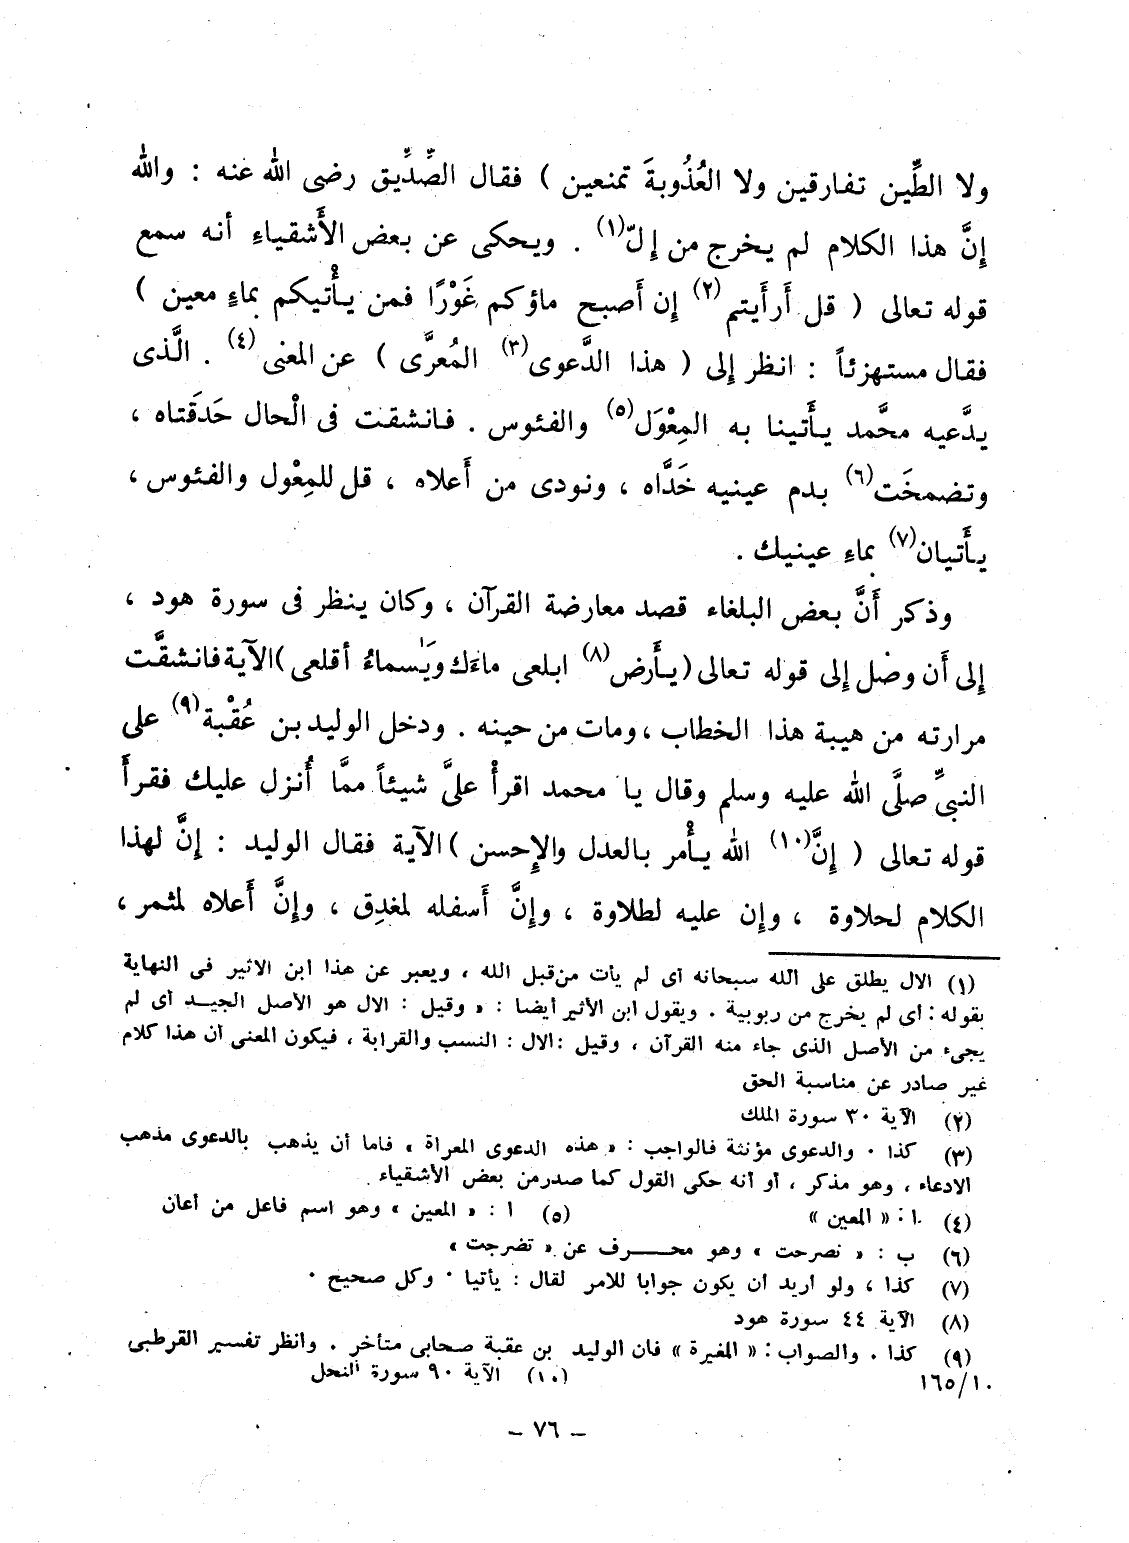 ولا الطِّين تفارقين ولا العُذُوبةَ تمنعين ) فقال الصِّدِّيق رضى الله عنه : والله
إِنَّ هذا الكلام لم يخرج من إِلّ(١) . ويحكى عن بعض الأَشقياءِ أنه سمع
قوله تعالى ( قل أَرأَيتم(٢) إِن أَصبح ماؤكم غَوْرًا فمن يأْتيكم بماءٍ معين )
فقال مستهزئاً : انظر إِلى ( هذا الدَّعوى(٣) المُعرَّى ) عن المعنى(٤) . الَّذى
يدَّعيه محَّمد يأَتينا به المِعْوَل(٥) والفئوس . فانشقت فى الْحال حَدَقَتاه ،
وتضمخَت(٦) بدم عينيه خَدَّاه ، ونودى من أَعلاه ، قل للمِعْول والفئوس ،
يأَتيان(٧) بماءِ عينيك .
وذكر أَنَّ بعض البلغاء قصد معارضة القرآن ، وكان ينظر فى سورة هود ،
إلى أَن وصل إِلى قوله تعالى ( يأَرض(٨) ابلعى ماءَك ويٰسماءُ أقلعى ) الآية فانشقَّت
مرارته من هيبة هذا الخطاب ، ومات من حينه . ودخل الوليد بن عُقْبة(٩) على
النبىِّ صلَّى الله عليه وسلم وقال يا محمد اقرأْ علىَّ شيئاً ممَّا أُنزل عليك فقرأَ
قوله تعالى ( إِنَّ(١٠) الله يأْمر بالعدل والإِحسن ) الآية فقال الوليد : إِنَّ لهذا
الكلام لحلاوة ، وإِن عليه لطلاوة ، وإِنَّ أَسفله لمغدِق ، وإِنَّ أَعلاه لمثمر ،
(١) الال يطلق على الله سبحانه أى لم يأت من قبل الله ، ويعبر عن هذا ابن الاثير فى النهاية
بقوله : أى لم يخرج من ربوبية . ويقول ابن الأثير أيضا : « وقيل : الال هو الأصل الجيد أى لم
يجىء من الأصل الذى جاء منه القرآن ، وقيل : الال : النسب والقرابة ، فيكون المعنى أن هذا كلام
غير صادر عن مناسبة الحق
(٢) الآية ٣٠ سورة الملك
(٣) كذا . والدعوى مؤنثة فالواجب : « هذه الدعوى المعراة » فاما أن يذهب بالدعوى مذهب
الادعاء ، وهو مذكر ، أو أنه حكى القول كما صدر من بعض الأشقياء .
(٤) ا : « المعين » (٥) أ : « المعين » وهو اسم فاعل من أعان
(٦) ب : « نصرحت » وهو محرف عن « تضرجت »
(٧) كذا ، ولو أريد أن يكون جوابا للأمر لقال : يأتيا . وكل صحيح .
(٨) الآية ٤٤ سورة هود
(٩) كذا . والصواب : « المغيرة » فان الوليد بن عقبة صحابى متأخر . وانظر تفسير القرطبى
١٦٥/١٠ (١٠) الآية ٩٠ سورة النحل
– ٧٦ –